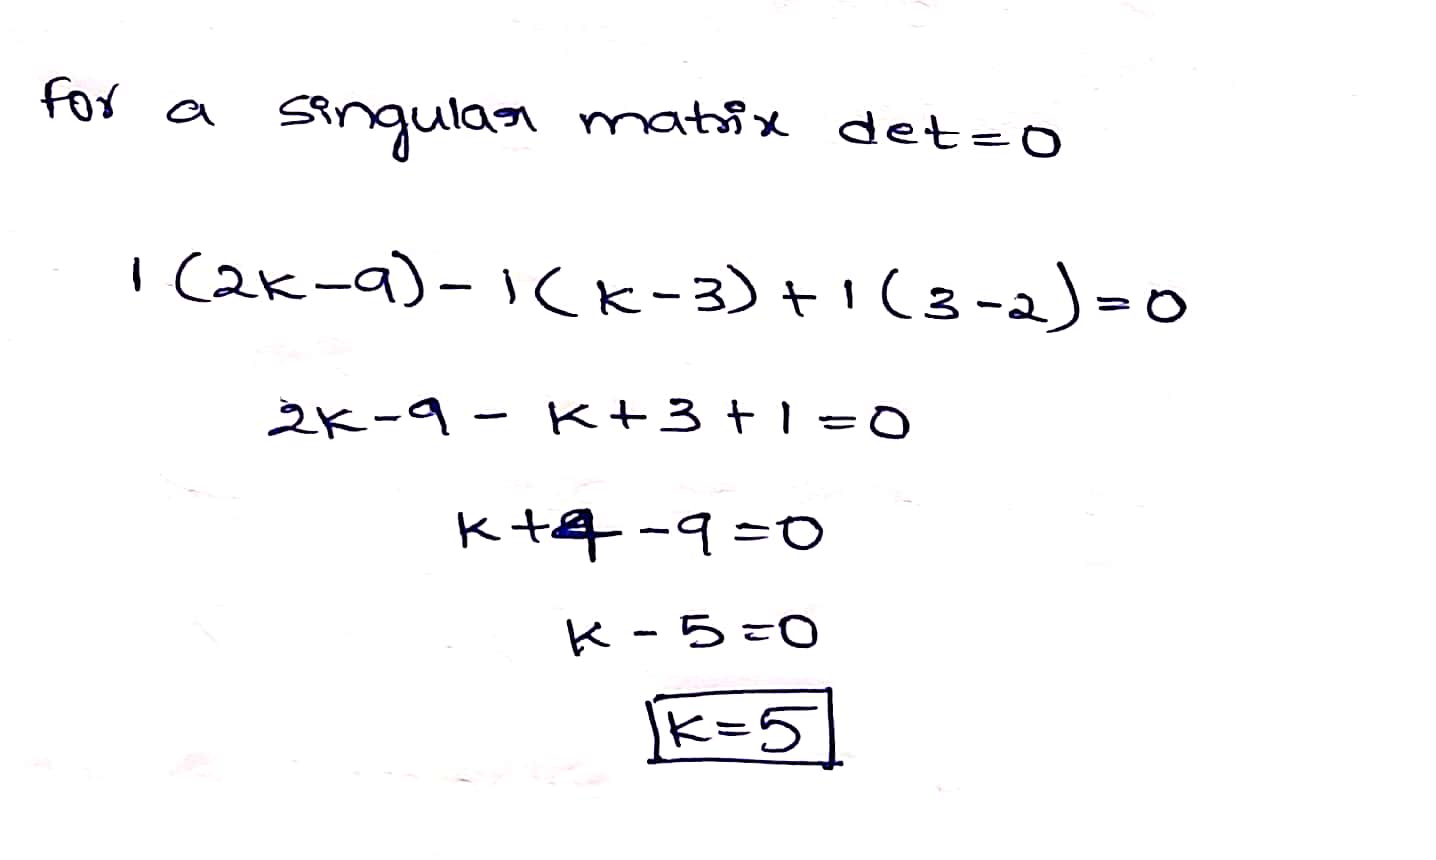 for a singular matrix det=0
1(2k-9)-1(k-3)+1(3-2)=0
2k-9-k+3+1=0
k+4-9=0
k-5=0
k=5